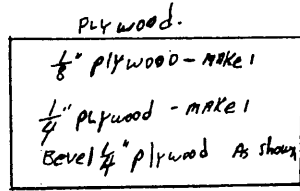 PLYwood.
1/8" plywood - MAKE 1
1/4" PLywood - MAKE 1
Bevel 1/4" plywood As shown